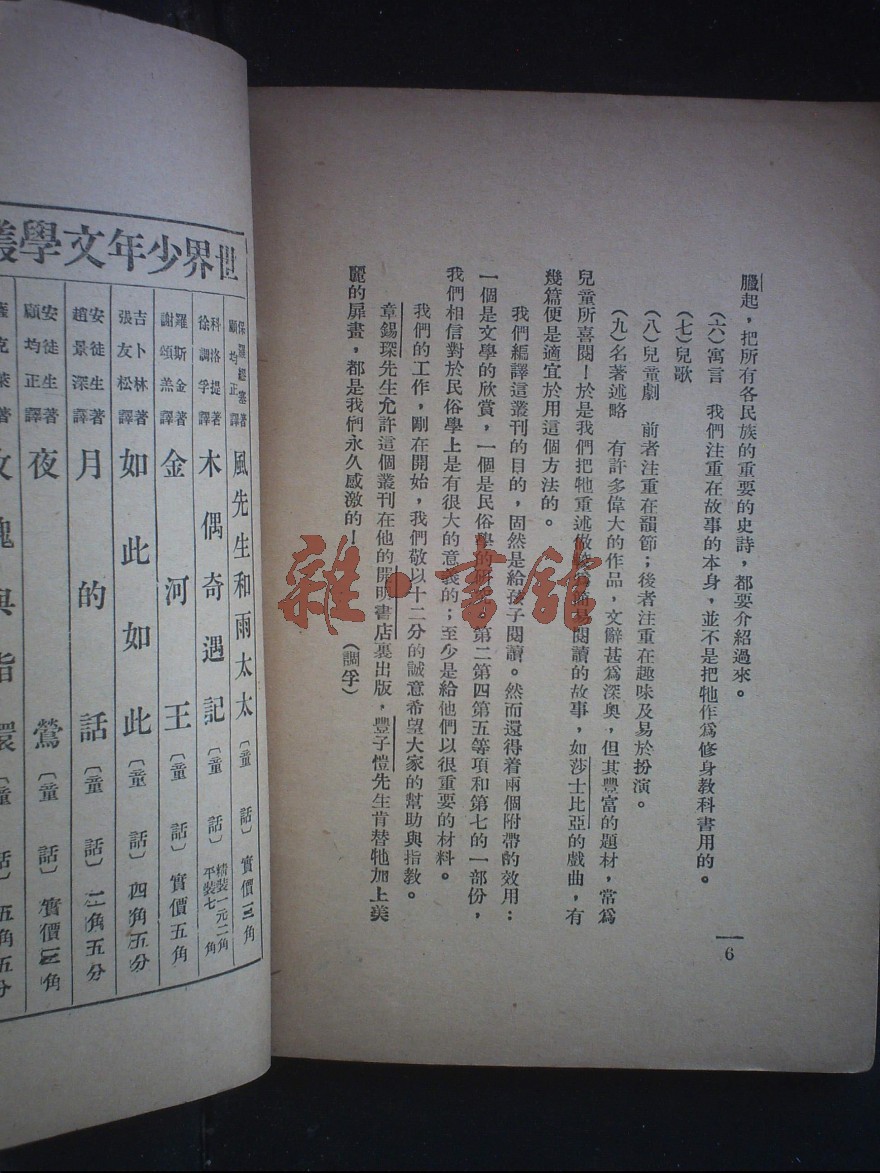 臘起，把所有各民族的重要的史詩，都要介紹過來。
（六）寓言　我們注重在故事的本身，並不是把牠作爲修身教科書用的。
（七）兒歌
（八）兒童劇　前者注重在韻節；後者注重在趣味及易於扮演。
（九）名著述略　有許多偉大的作品，文辭甚爲深奥，但其豐富的題材，常爲
兒童所喜閱！於是我們把牠重述做閱讀的故事，如莎士比亞的戲曲，有
幾篇便是適宜於用這個方法的。
我們編譯這叢刊的目的，固然是給孩子閱讀。然而還得着兩個附帶的效用：
一個是文學的欣賞，一個是民俗學的研究。第二第四第五等項和第七的一部份，
我們相信對於民俗學上是有很大的意義的；至少是給他們以很重要的材料。
我們的工作，剛在開始，我們敬以十二分的誠意希望大家的幫助與指教。
章錫琛先生允許這個叢刊在他的開明書店裏出版，豐子愷先生肯替牠加上美
麗的扉畫，都是我們永久感激的！
（調孚）
6
雜·書館
世界少年文學叢
保羅繆塞著 顧均正譯 風先生和雨太太〔童話〕實價三角
科洛提著 徐調孚譯 木偶奇遇記〔童話〕精裝一元二角 平裝七角
羅斯金著 謝頌羔譯 金河王〔童話〕實價五角
吉卜林著 張友松譯 如此如此〔童話〕四角五分
安徒生著 趙景深譯 月的話〔童話〕二角五分
安徒生著 顧均正譯 夜鶯〔童話〕實價三角
克萊著 玫瑰與指環〔童話〕五角五分